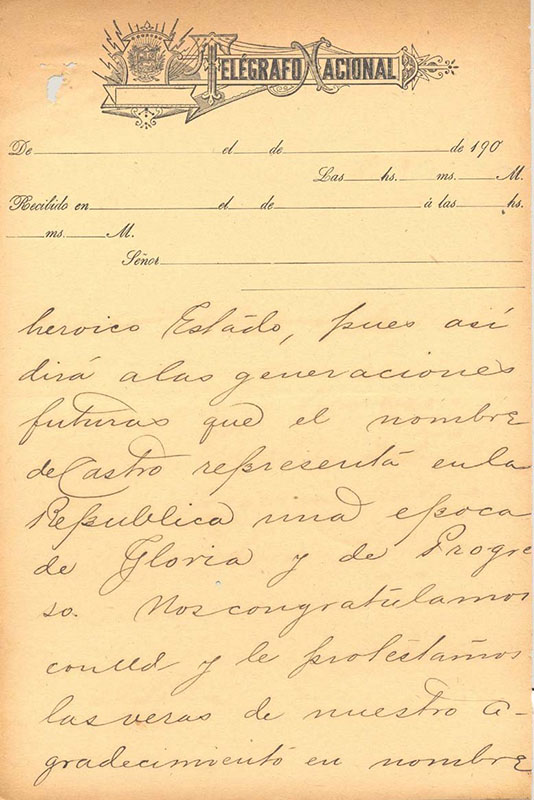 TELÉGRAFO NACIONAL
De el de de 190
Las hs. ms. M.
Recibido en el de á las hs.
ms. M.
Señor
heroico Estado, pues así
dirá alas generaciones
futuras que el nombre
de Castro representá en la
Republica una epoca
de Gloria y de Progre
so. Nos congratulamos
con Ud y le protestamos
las veras de nuestro a-
gradecimiento en nombre